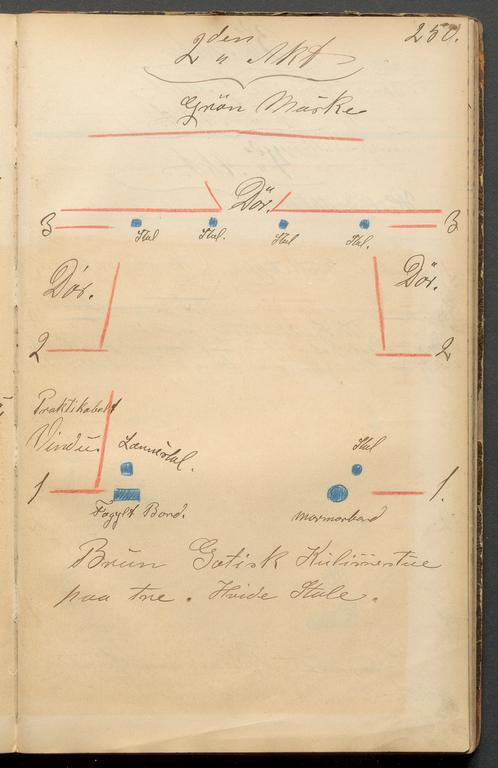 250.
2den Akt
Grön Maske
Dör.
3 3
Stol Stol. Stol Stol.
Dör. Dör.
2 2
Praktikabelt
Vindu.
Lænestol. Stol
1 1.
Fogylt Bord. Marmorbord
Brun Gotisk Kulissestue
paa tre. Hvide Stole.